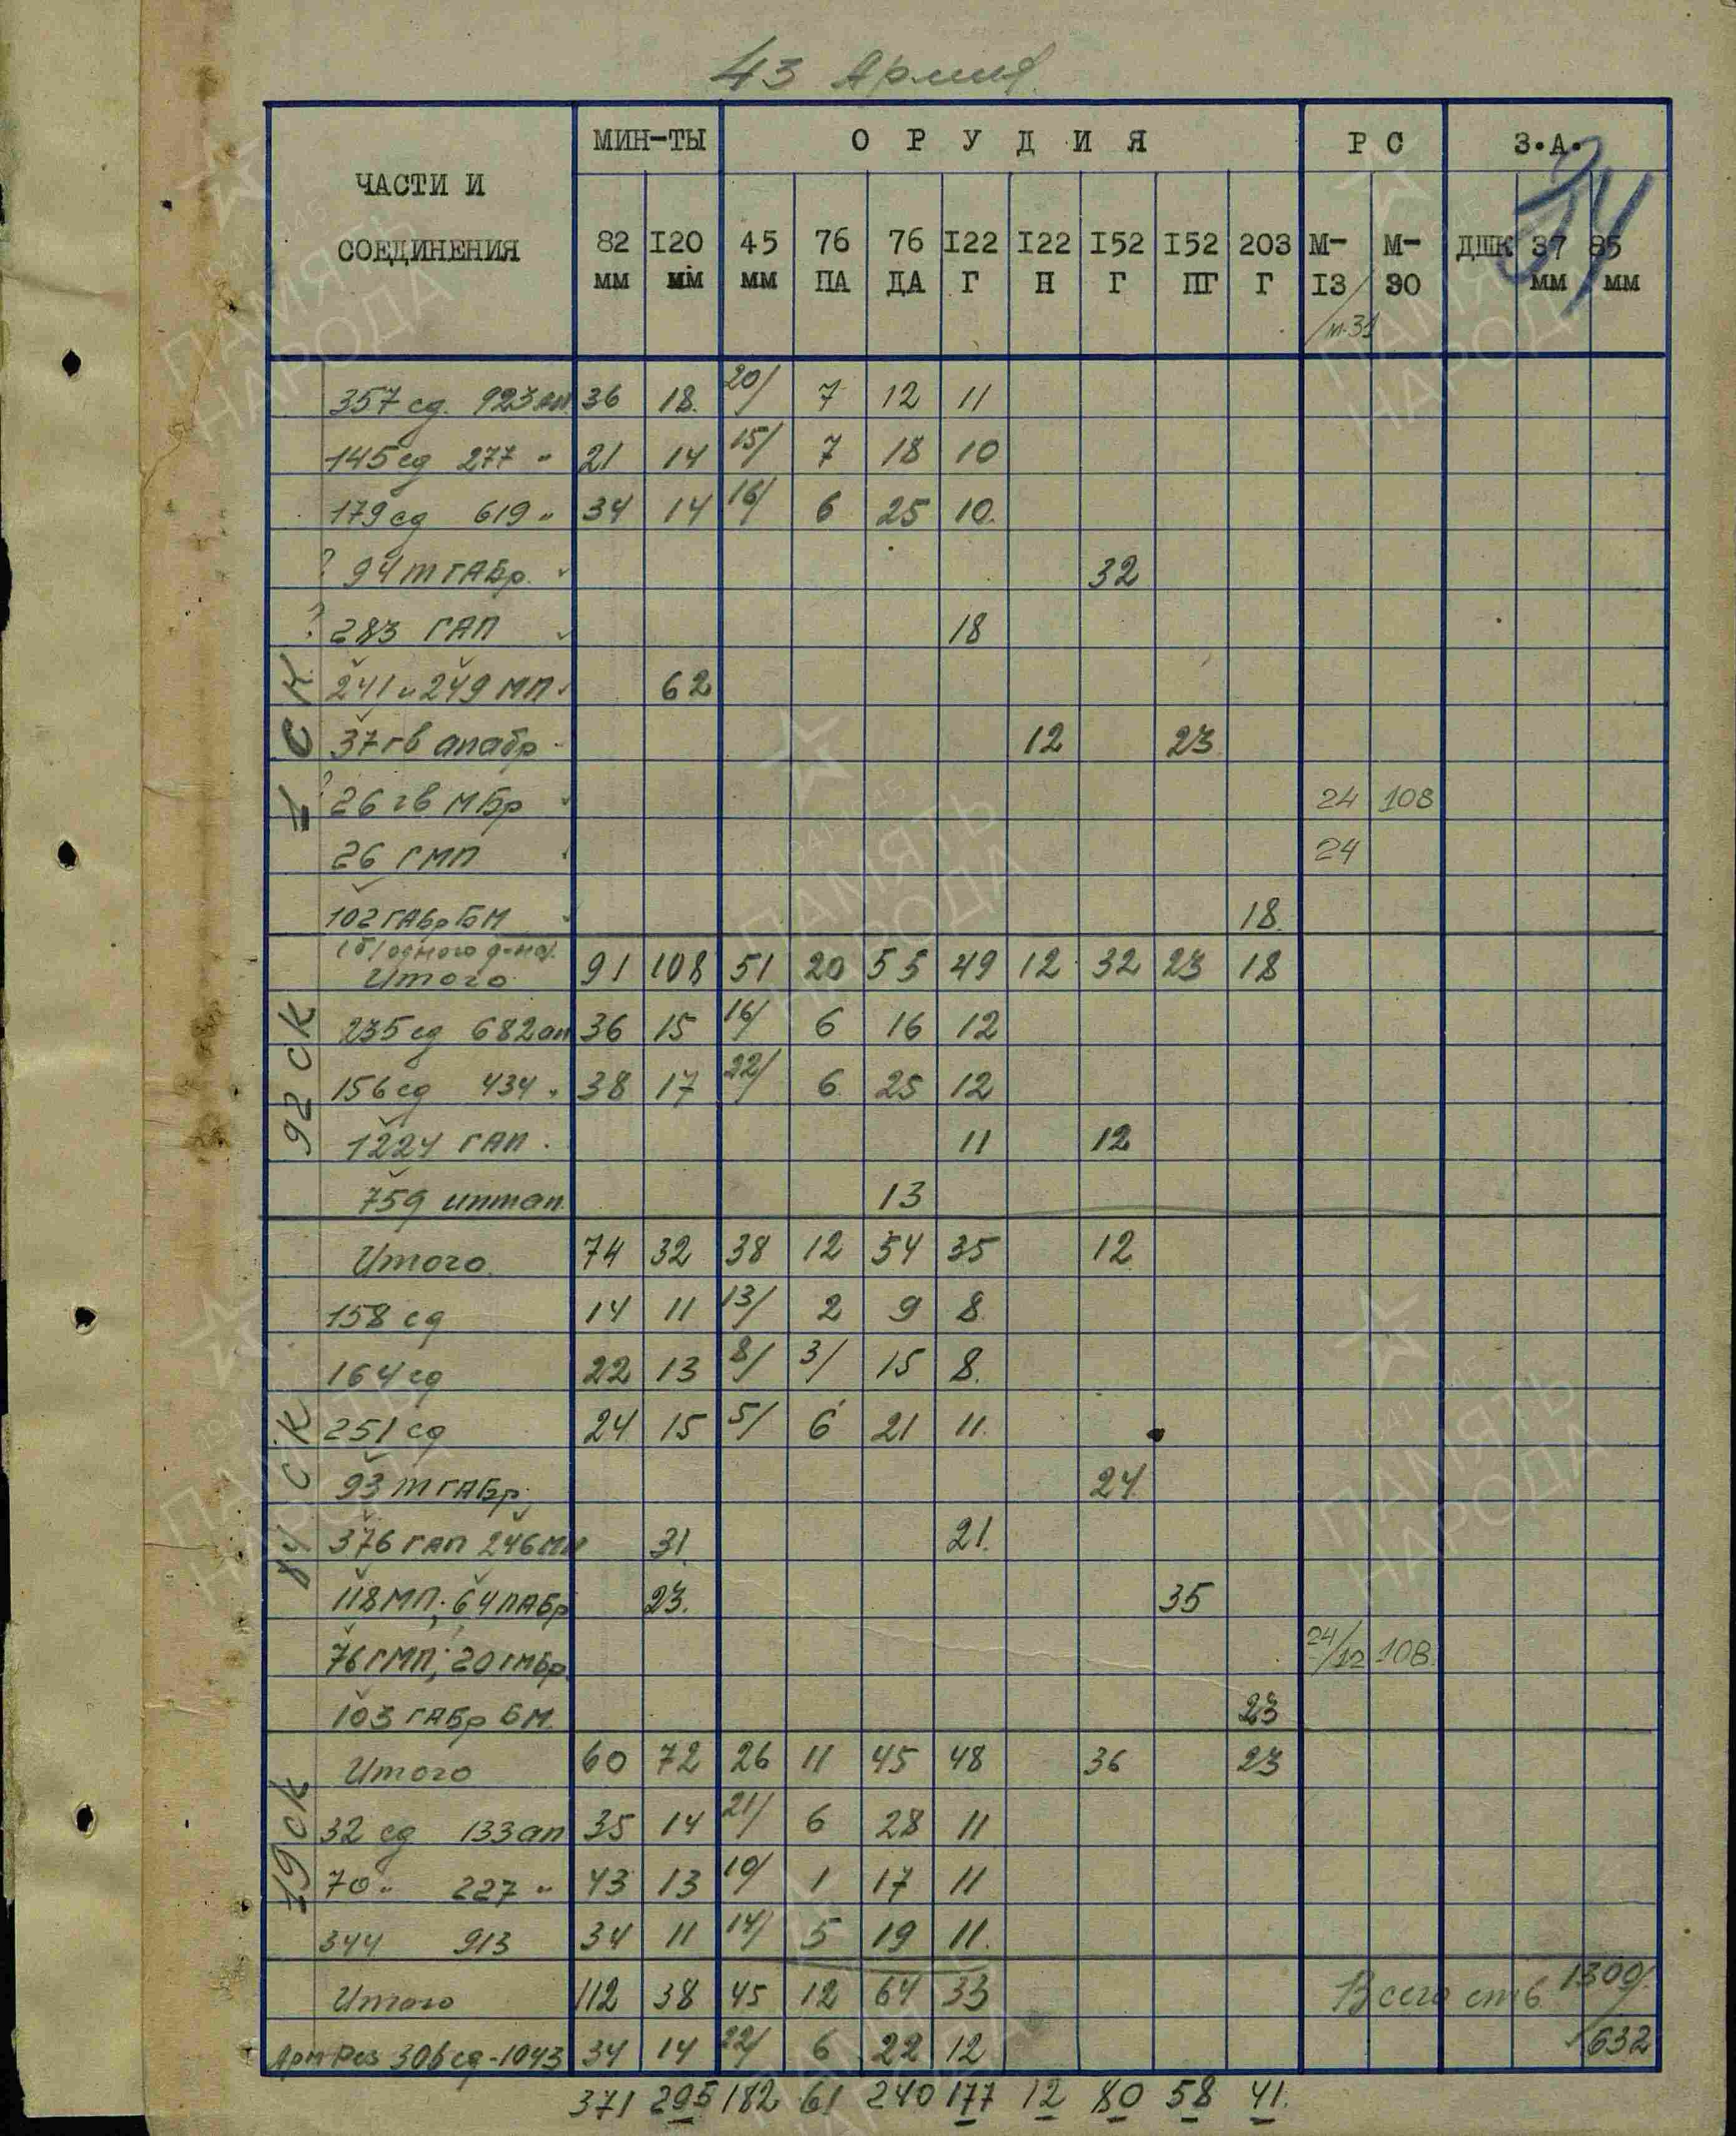 43 Армия.
34
ЧАСТИ И СОЕДИНЕНИЯ МИН-ТЫ ОРУДИЯ РС З.А.
82 мм 120 мм 45 мм 76 ПА 76 ДА 122 Г 122 Н 152 Г 152 ПГ 203 Г М-13/м.31 М-30 ДШК 37 мм 85 мм
1 СК
357 сд. 923 ап 36 18. 20/ 7 12 11
145 сд 277 " 21 14 15/ 7 18 10
179 сд 619 " 34 14 16/ 6 25 10.
? 94 тГАБр. 32
? 283 ГАП 18
241 и 249 МП 62
37 гв апабр 12 23
? 26 гв МБр 24 108
26 ГМП 24
102 ГАБр БМ 18.
(б/одного д-на).
Итого 91 108 51 20 55 49 12 32 23 18
92 СК
235 сд 682 ап 36 15 16/ 6 16 12
156 сд 434 " 38 17 22/ 6 25 12
1224 ГАП. 11 12
759 иптап. 13
Итого. 74 32 38 12 54 35 12
84 СК
158 сд 14 11 13/ 2 9 8.
164 сд 22 13 8/ 3/ 15 8.
251 сд 24 15 5/ 6 21 11.
93 тГАБр. 24
376 ГАП 246 МП 31. 21.
118 МП; 64 ПАБр 23. 35
76 ГМП; 20 гМБр. 24/12 108.
103 ГАБр БМ. 23
Итого 60 72 26 11 45 48 36 23
19 СК
32 сд 133 ап 35 14 21/ 6 28 11
70 " 227 " 43 13 10/ 1 17 11
344 913 34 11 14/ 5 19 11.
Итого 112 38 45 12 64 33 Всего ств 1300/
Арт Рез 306 сд-1043 34 14 22/ 6 22 12 632
371 295 182 61 240 177 12 80 58 41.
ПАМЯТЬ НАРОДА
1941-1945